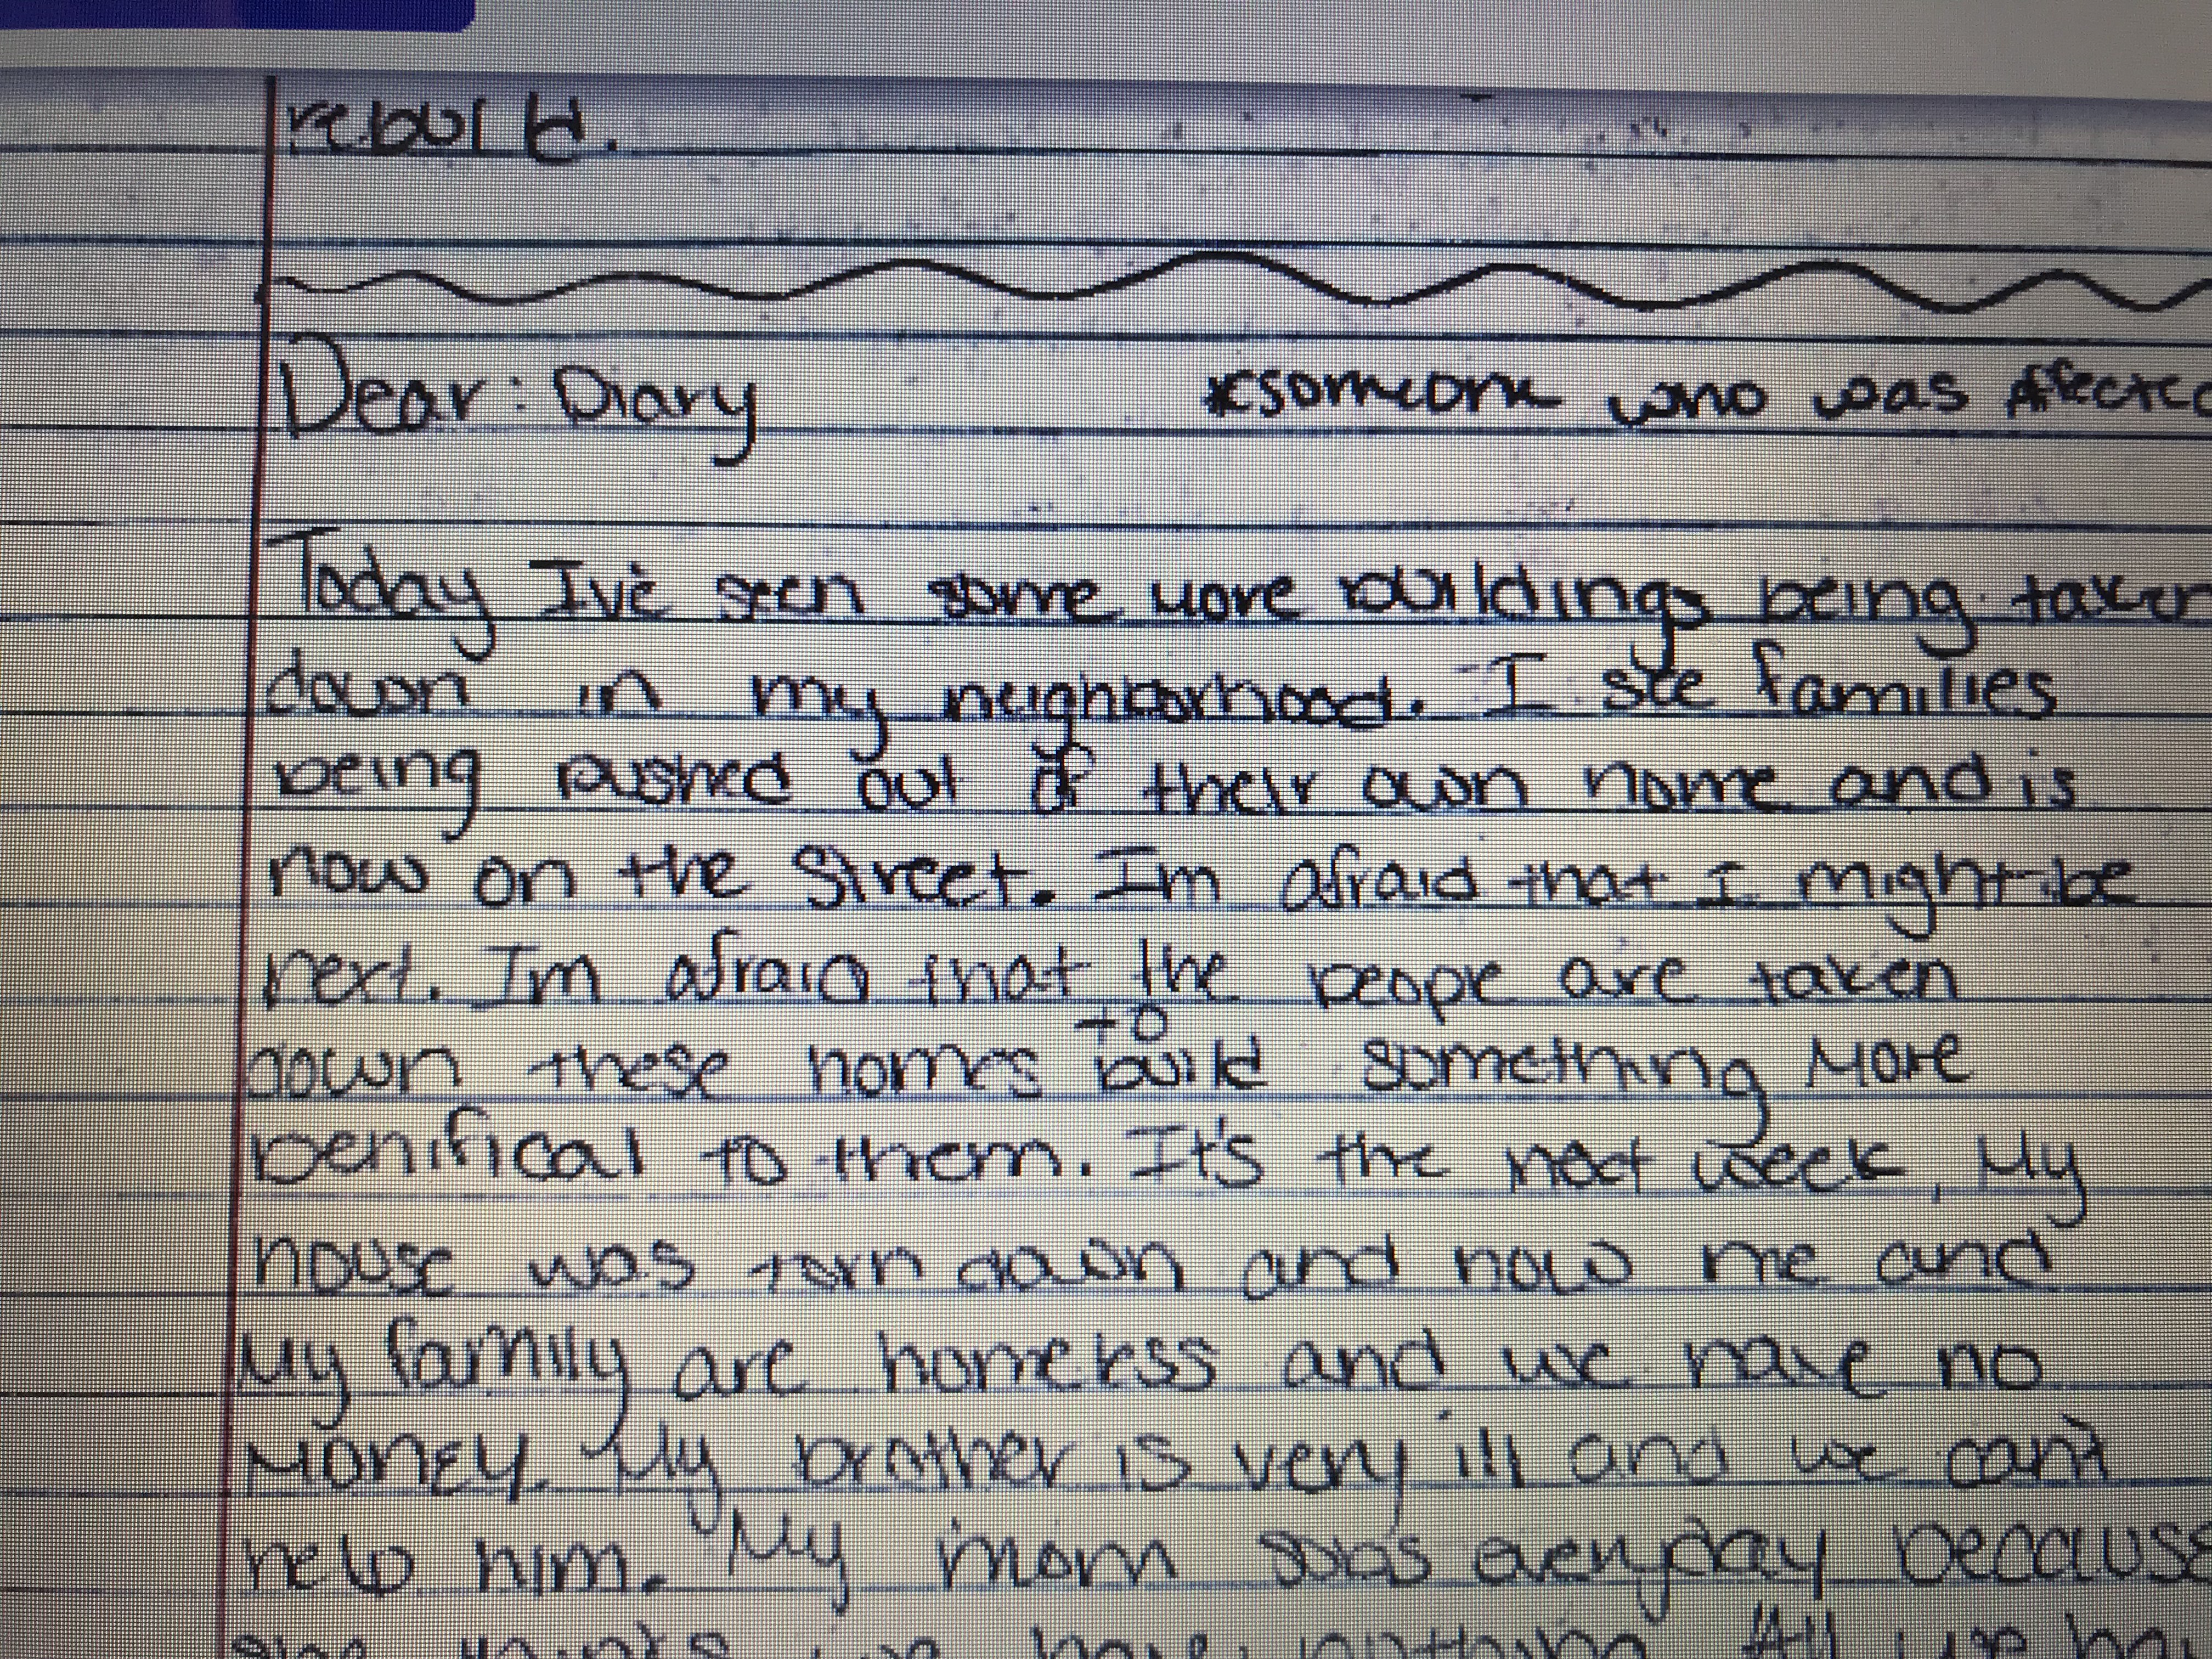 rebuild.
Dear: Diary *someone who was Affected
Today Ive seen some more buildings being taken
down in my neighborhood. I see families
being pushed out of their own home and is
now on the street. Im afraid that I might be
next. Im afraid that the people are taken
to
down these homes build something More
benifical to them. It's the next week, My
house was torn down and now me and
My family are homeless and we have no
Money. My brother is very ill and we can't
help him. My mom sobs everyday because
she thinks we have nothing. All we hav